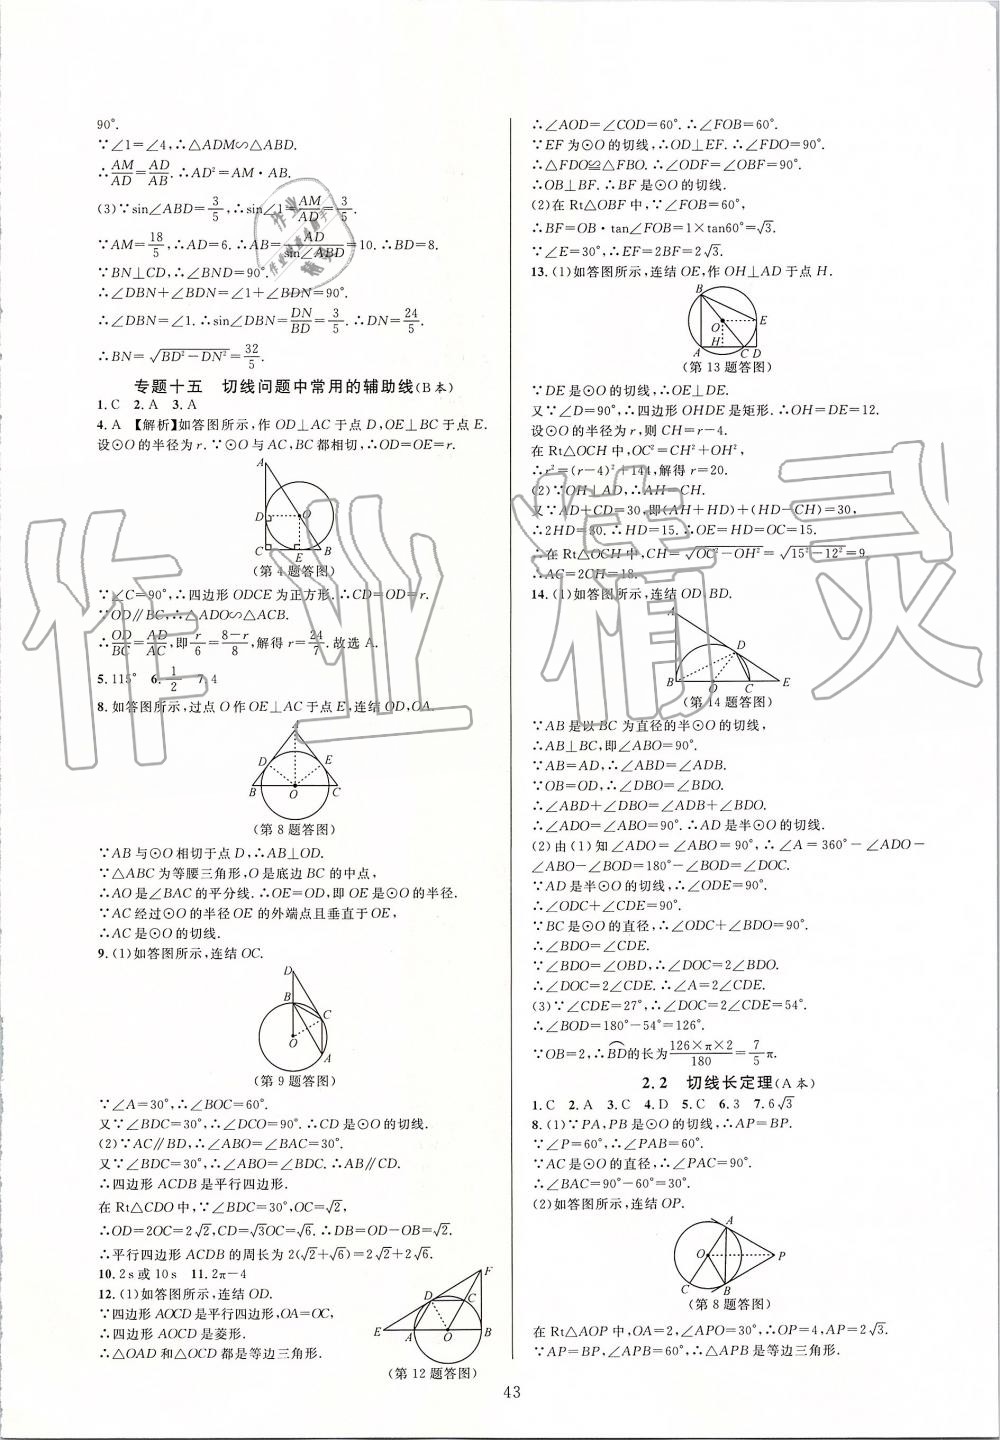 90°.
∵∠1=∠4,∴△ADM∽△ABD.
∴AM/AD=AD/AB.∴AD²=AM·AB.
(3)∵sin∠ABD=3/5,∴sin∠1=AM/AD=3/5.
∵AM=18/5,∴AD=6.∴AB=AD/sin∠ABD=10.∴BD=8.
∵BN⊥CD,∴∠BND=90°.
∴∠DBN+∠BDN=∠1+∠BDN=90°.
∴∠DBN=∠1.∴sin∠DBN=DN/BD=3/5.∴DN=24/5.
∴BN=√(BD²-DN²)=32/5.
专题十五 切线问题中常用的辅助线(B本)
1.C 2.A 3.A
4.A 【解析】如答图所示,作OD⊥AC于点D,OE⊥BC于点E.
设⊙O的半径为r.∵⊙O与AC,BC都相切,∴OD=OE=r.
A
D
O
C
E
B
(第4题答图)
∵∠C=90°,∴四边形ODCE为正方形.∴CD=OD=r.
∵OD∥BC,∴△ADO∽△ACB.
∴OD/BC=AD/AC,即r/6=(8-r)/8,解得r=24/7.故选A.
5.115° 6.1/2 7.4
8.如答图所示,过点O作OE⊥AC于点E,连结OD,OA.
A
D
E
B
O
C
(第8题答图)
∵AB与⊙O相切于点D,∴AB⊥OD.
∵△ABC为等腰三角形,O是底边BC的中点,
∴AO是∠BAC的平分线.∴OE=OD,即OE是⊙O的半径.
∵AC经过⊙O的半径OE的外端点且垂直于OE,
∴AC是⊙O的切线.
9.(1)如答图所示,连结OC.
D
B
C
O
A
(第9题答图)
∵∠A=30°,∴∠BOC=60°.
又∵∠BDC=30°,∴∠DCO=90°.∴CD是⊙O的切线.
(2)∵AC∥BD,∴∠ABO=∠BAC=30°.
又∵∠BDC=30°,∴∠ABO=∠BDC.∴AB∥CD.
∴四边形ACDB是平行四边形.
在Rt△CDO中,∵∠BDC=30°,OC=√2,
∴OD=2OC=2√2,CD=√3OC=√6.∴DB=OD-OB=√2.
∴平行四边形ACDB的周长为2(√2+√6)=2√2+2√6.
10.2s或10s 11.2π-4
12.(1)如答图所示,连结OD.
∵四边形AOCD是平行四边形,OA=OC,
∴四边形AOCD是菱形.
∴△OAD和△OCD都是等边三角形.
F
D
C
E
A
O
B
(第12题答图)
∴∠AOD=∠COD=60°.∴∠FOB=60°.
∵EF为⊙O的切线,∴OD⊥EF.∴∠FDO=90°.
∴△FDO≌△FBO.∴∠ODF=∠OBF=90°.
∴OB⊥BF.∴BF是⊙O的切线.
(2)在Rt△OBF中,∵∠FOB=60°,
∴BF=OB·tan∠FOB=1×tan60°=√3.
∵∠E=30°,∴EF=2BF=2√3.
13.(1)如答图所示,连结OE,作OH⊥AD于点H.
B
O
E
H
A
C
D
(第13题答图)
∵DE是⊙O的切线,∴OE⊥DE.
又∵∠D=90°,∴四边形OHDE是矩形.∴OH=DE=12.
设⊙O的半径为r,则CH=r-4.
在Rt△OCH中,OC²=CH²+OH²,
∴r²=(r-4)²+144,解得r=20.
(2)∵OH⊥AD,∴AH=CH.
又∵AD+CD=30,即(AH+HD)+(HD-CH)=30,
∴2HD=30.∴HD=15.∴OE=HD=OC=15.
∴在Rt△OCH中,CH=√(OC²-OH²)=√(15²-12²)=9.
∴AC=2CH=18.
14.(1)如答图所示,连结OD,BD.
A
D
B
O
C
E
(第14题答图)
∵AB是以BC为直径的半⊙O的切线,
∴AB⊥BC,即∠ABO=90°.
∵AB=AD,∴∠ABD=∠ADB.
∵OB=OD,∴∠DBO=∠BDO.
∴∠ABD+∠DBO=∠ADB+∠BDO.
∴∠ADO=∠ABO=90°.∴AD是半⊙O的切线.
(2)由(1)知∠ADO=∠ABO=90°,∴∠A=360°-∠ADO-
∠ABO-∠BOD=180°-∠BOD=∠DOC.
∵AD是半⊙O的切线,∴∠ODE=90°.
∴∠ODC+∠CDE=90°.
∵BC是⊙O的直径,∴∠ODC+∠BDO=90°.
∴∠BDO=∠CDE.
∵∠BDO=∠OBD,∴∠DOC=2∠BDO.
∴∠DOC=2∠CDE.∴∠A=2∠CDE.
(3)∵∠CDE=27°,∴∠DOC=2∠CDE=54°.
∴∠BOD=180°-54°=126°.
∵OB=2,∴BD⌒的长为(126×π×2)/180=7/5π.
2.2 切线长定理(A本)
1.C 2.A 3.C 4.D 5.C 6.3 7.6√3
8.(1)∵PA,PB是⊙O的切线,∴AP=BP.
∵∠P=60°,∴∠PAB=60°.
∵AC是⊙O的直径,∴∠PAC=90°.
∴∠BAC=90°-60°=30°.
(2)如答图所示,连结OP.
A
O
P
C
B
(第8题答图)
在Rt△AOP中,OA=2,∠APO=30°,∴OP=4,AP=2√3.
∵AP=BP,∠APB=60°,∴△APB是等边三角形.
43
作业精灵